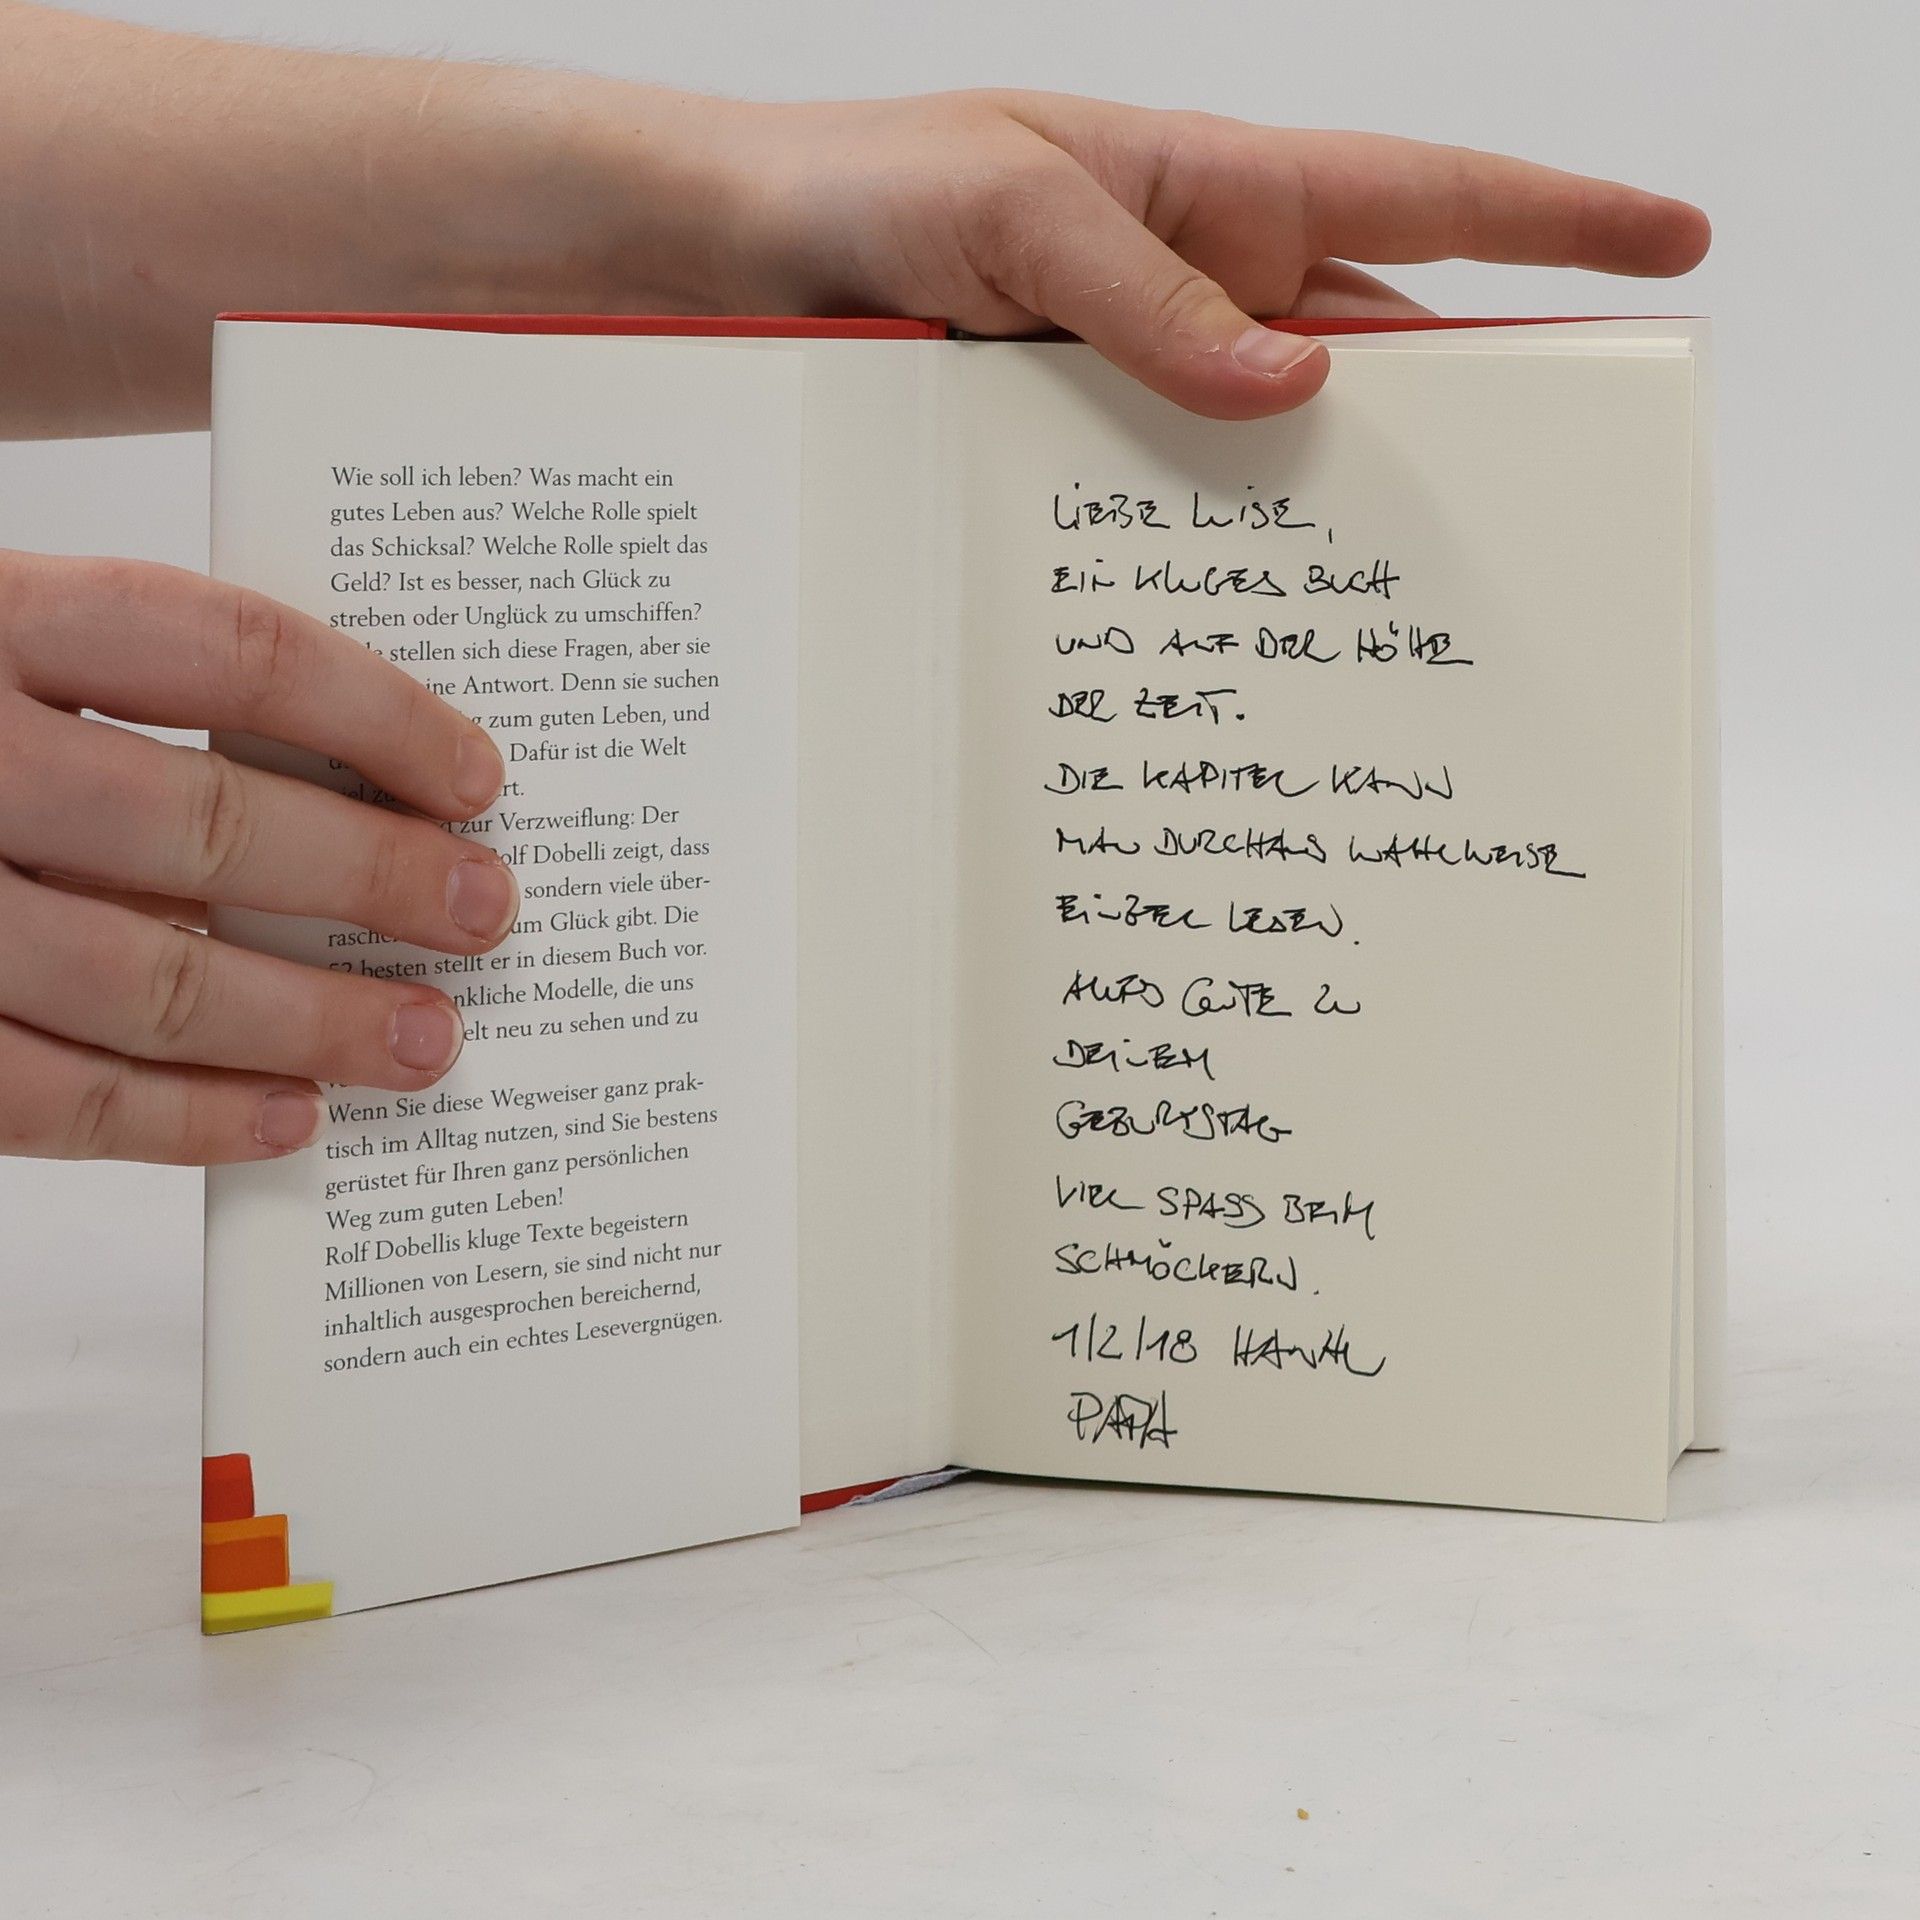 Wie soll ich leben? Was macht ein
gutes Leben aus? Welche Rolle spielt
das Schicksal? Welche Rolle spielt das
Geld? Ist es besser, nach Glück zu
streben oder Unglück zu umschiffen?
stellen sich diese Fragen, aber sie
Antwort. Denn sie suchen
zum guten Leben, und
Dafür ist die Welt
zur Verzweiflung: Der
Rolf Dobelli zeigt, dass
sondern viele über-
Glück gibt. Die
52 besten stellt er in diesem Buch vor.
Modelle, die uns
neu zu sehen und zu
Wenn Sie diese Wegweiser ganz prak-
tisch im Alltag nutzen, sind Sie bestens
gerüstet für Ihren ganz persönlichen
Weg zum guten Leben!
Rolf Dobellis kluge Texte begeistern
Millionen von Lesern, sie sind nicht nur
inhaltlich ausgesprochen bereichernd,
sondern auch ein echtes Lesevergnügen.
LIEBE LUISE,
EIN KLUGES BUCH
UND AUF DER HÖHE
DER ZEIT.
DIE KAPITEL KANN
MAN DURCHAUS WAHLWEISE
EINZEL LESEN.
ALLES GUTE ZU
DEINEM
GEBURTSTAG
VIEL SPASS BEIM
SCHMÖCKERN.
1/2/18
PAPA